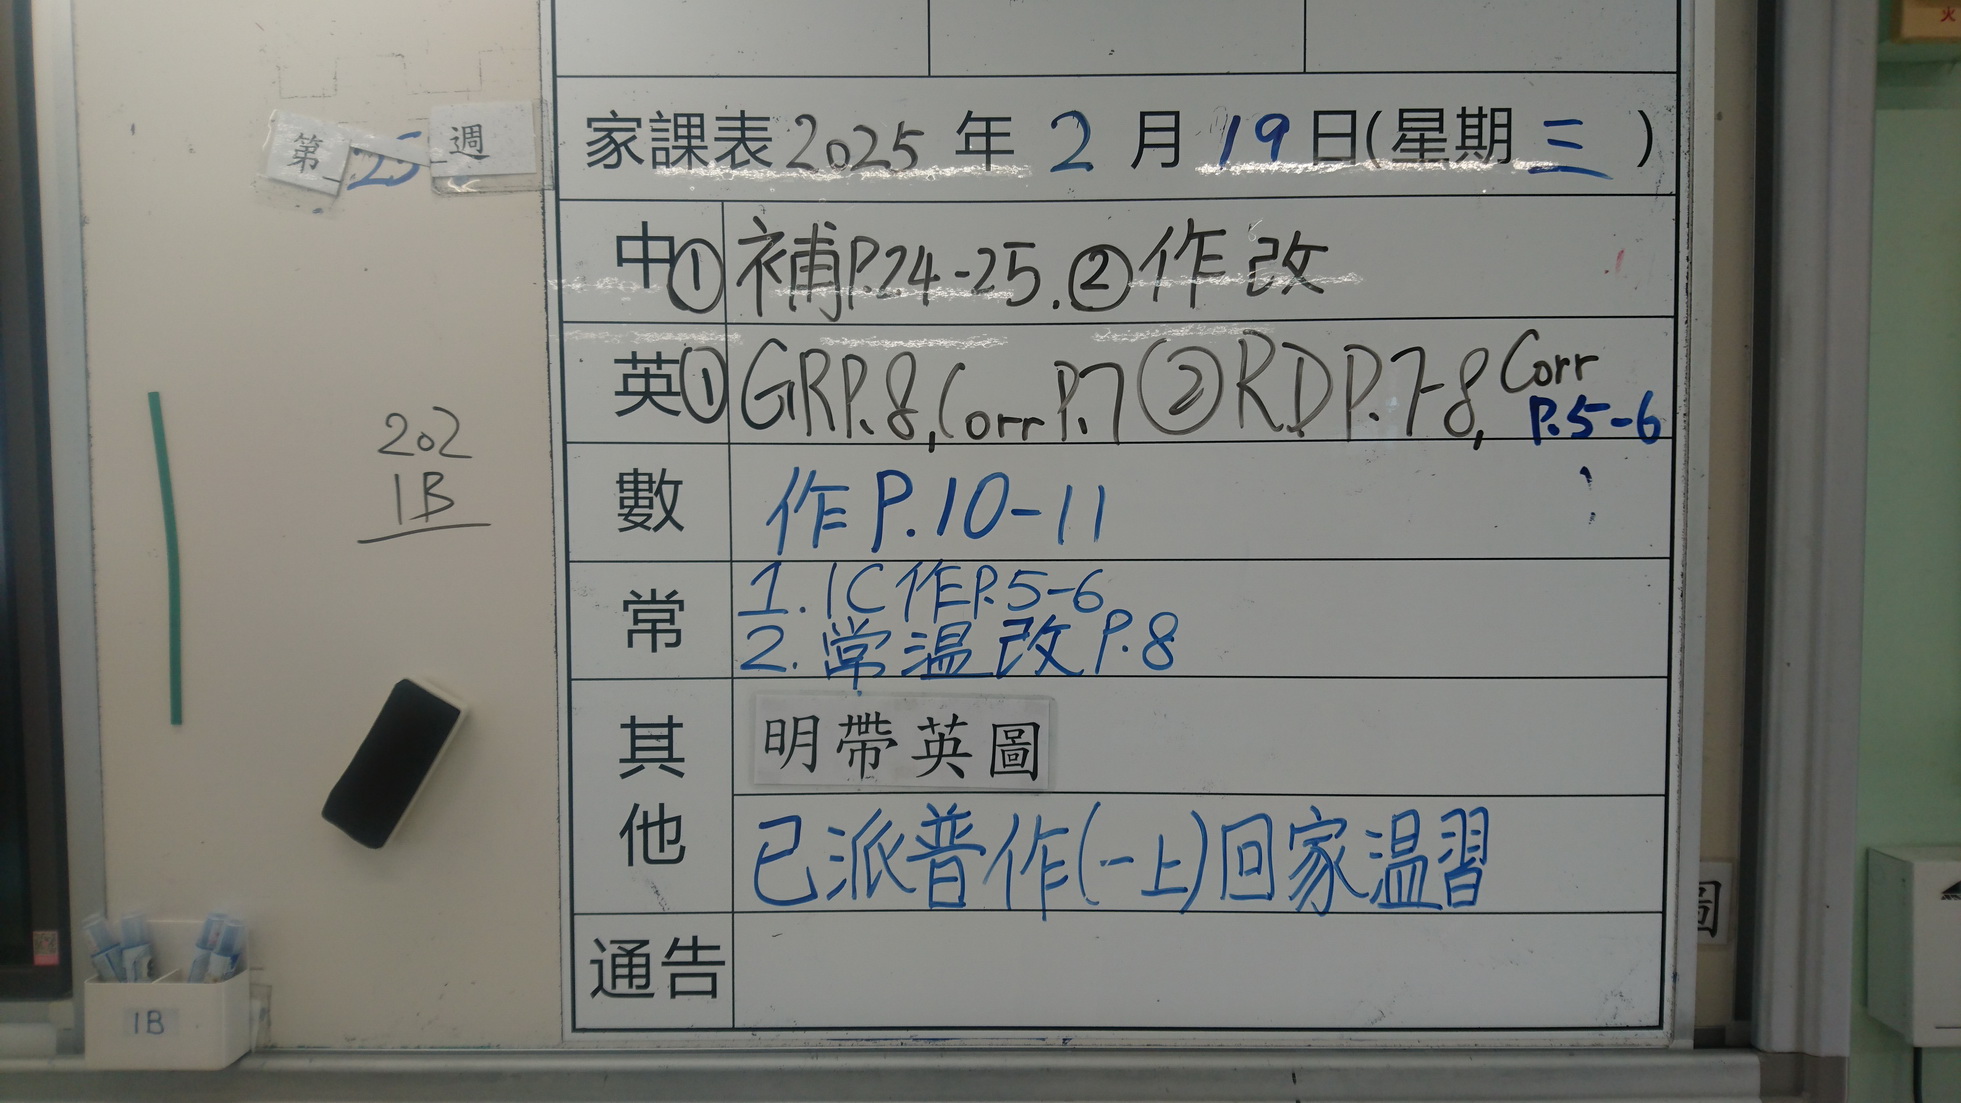 火
第 25 週
家課表 2025 年 2 月 19 日(星期 三 )
中 ① 補P.24-25. ② 作改
英 ① GRP.8, Corr P.7 ② RD P.7-8, Corr P.5-6
202
1B
數 作 P.10-11
常 1. 1C 作P.5-6
2. 常温改 P.8
其他 明帶英圖
已派普作(一上)回家温習
通告
圖
1B